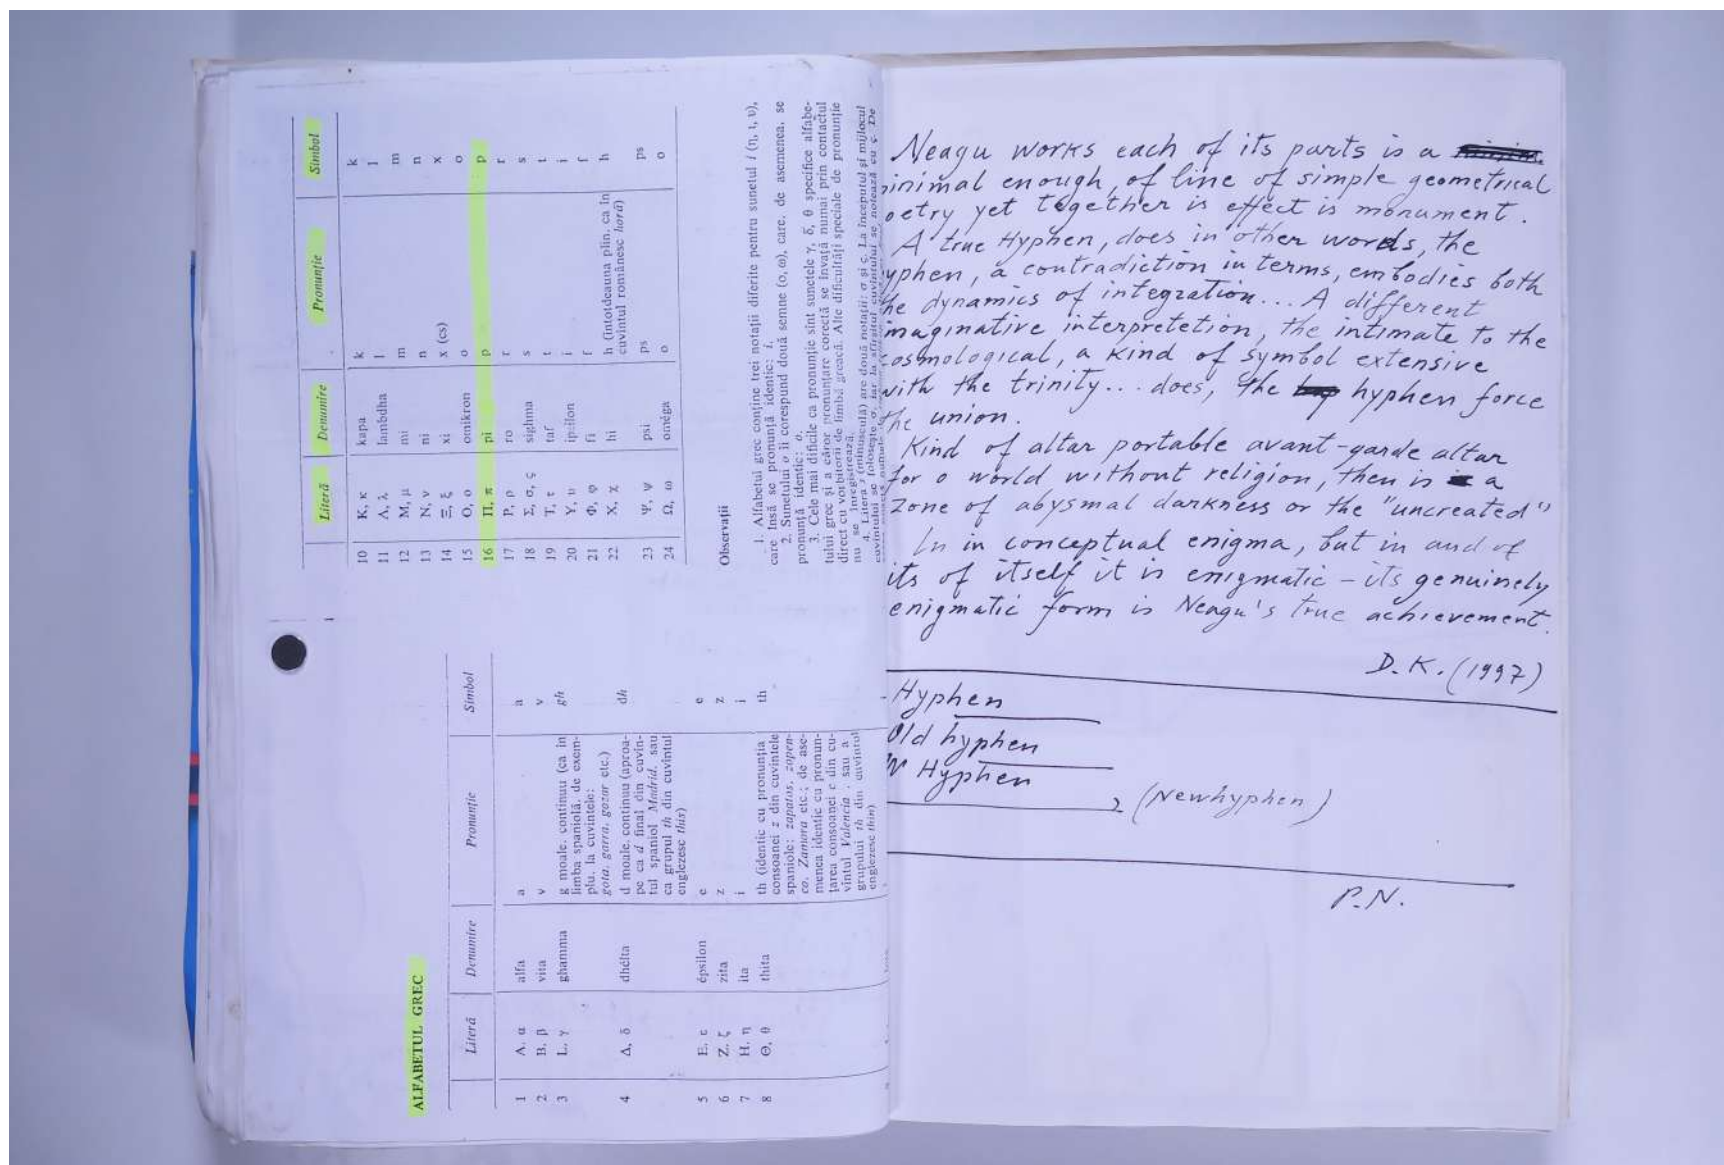 ALFABETUL GREC
Literă Denumire Pronunție Simbol
1 A, α alfa a a
2 B, β vita v v
3 L, γ ghamma g moale, continuu (ca în gh
limba spaniolă, de exem-
plu, la cuvintele:
gota, garra, gozar etc.)
4 Δ, δ dhélta d moale, continuu (aproa- dh
pe ca d final din cuvîn-
tul spaniol Madrid, sau
ca grupul th din cuvîntul
englezesc this)
5 E, ε épsilon e e
6 Z, ζ zita z z
7 H, η ita i i
8 Θ, θ thita th (identic cu pronunția th
consoanei z din cuvintele
spaniole: zapatos, zopen-
co, Zamora etc.; de ase-
menea identic cu pronun-
țarea consoanei c din cu-
vîntul Valencia, sau a
grupului th din cuvîntul
englezesc thin)
Literă Denumire Pronunție Simbol
10 K, κ kapa k k
11 Λ, λ lambdha l l
12 M, μ mi m m
13 N, ν ni n n
14 Ξ, ξ xi x (cs) x
15 O, o omikron o o
16 Π, π pi p p
17 P, ρ ro r r
18 Σ, σ, ς sighma s s
19 T, τ taf t t
20 Y, υ ipsilon i i
21 Φ, φ fi f f
22 X, χ hi h (întotdeauna plin, ca în h
cuvîntul românesc horă)
23 Ψ, ψ psi ps ps
24 Ω, ω oméga o o
Observații
1. Alfabetul grec conține trei notații diferite pentru sunetul i (η, ι, υ),
care însă se pronunță identic: i.
2. Sunetului o îi corespund două semne (o, ω), care, de asemenea, se
pronunță identic: o.
3. Cele mai dificile ca pronunție sînt sunetele γ, δ, θ specifice alfabe-
tului grec și a căror pronunțare corectă se învață numai prin contactul
direct cu vorbitorii de limbă greacă. Alte dificultăți speciale de pronunție
nu se înregistrează.
4. Litera s (minusculă) are două notații: σ și ς. La începutul și mijlocul
cuvîntului se folosește σ, iar la sfîrșitul cuvîntului se notează cu ς. De
Neagu works each of its parts is a
minimal enough, of line of simple geometrical
oetry yet together is effect is monument.
A true Hyphen, does in other words, the
yphen, a contradiction in terms, embodies both
he dynamics of integration... A different
maginative interpretetion, the intimate to the
osmological, a kind of symbol extensive
with the trinity... does, the hyphen force
he union.
Kind of altar portable avant-garde altar
for o world without religion, then is a
zone of abysmal darkness or the "uncreated"
In in conceptual enigma, but in and of
its of itself it is enigmatic – its genuinely
enigmatic form is Neagu's true achievement.
D.K. (1997)
Hyphen
Old hyphen
N Hyphen
(Newhyphen)
P.N.